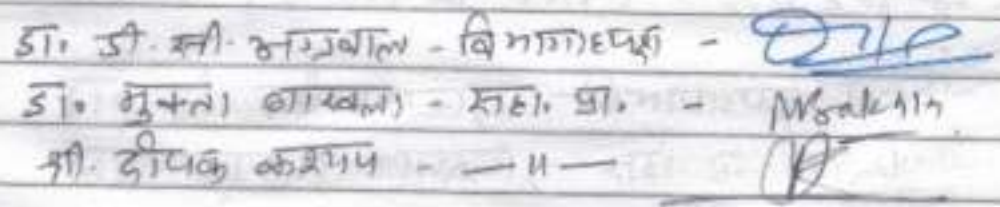 डा. डी. सी. अग्रवाल - विभागाध्यक्ष -
डा. मुक्ता बाखला - सहा. प्रा. -
श्री. दीपक कश्यप - — 11 —